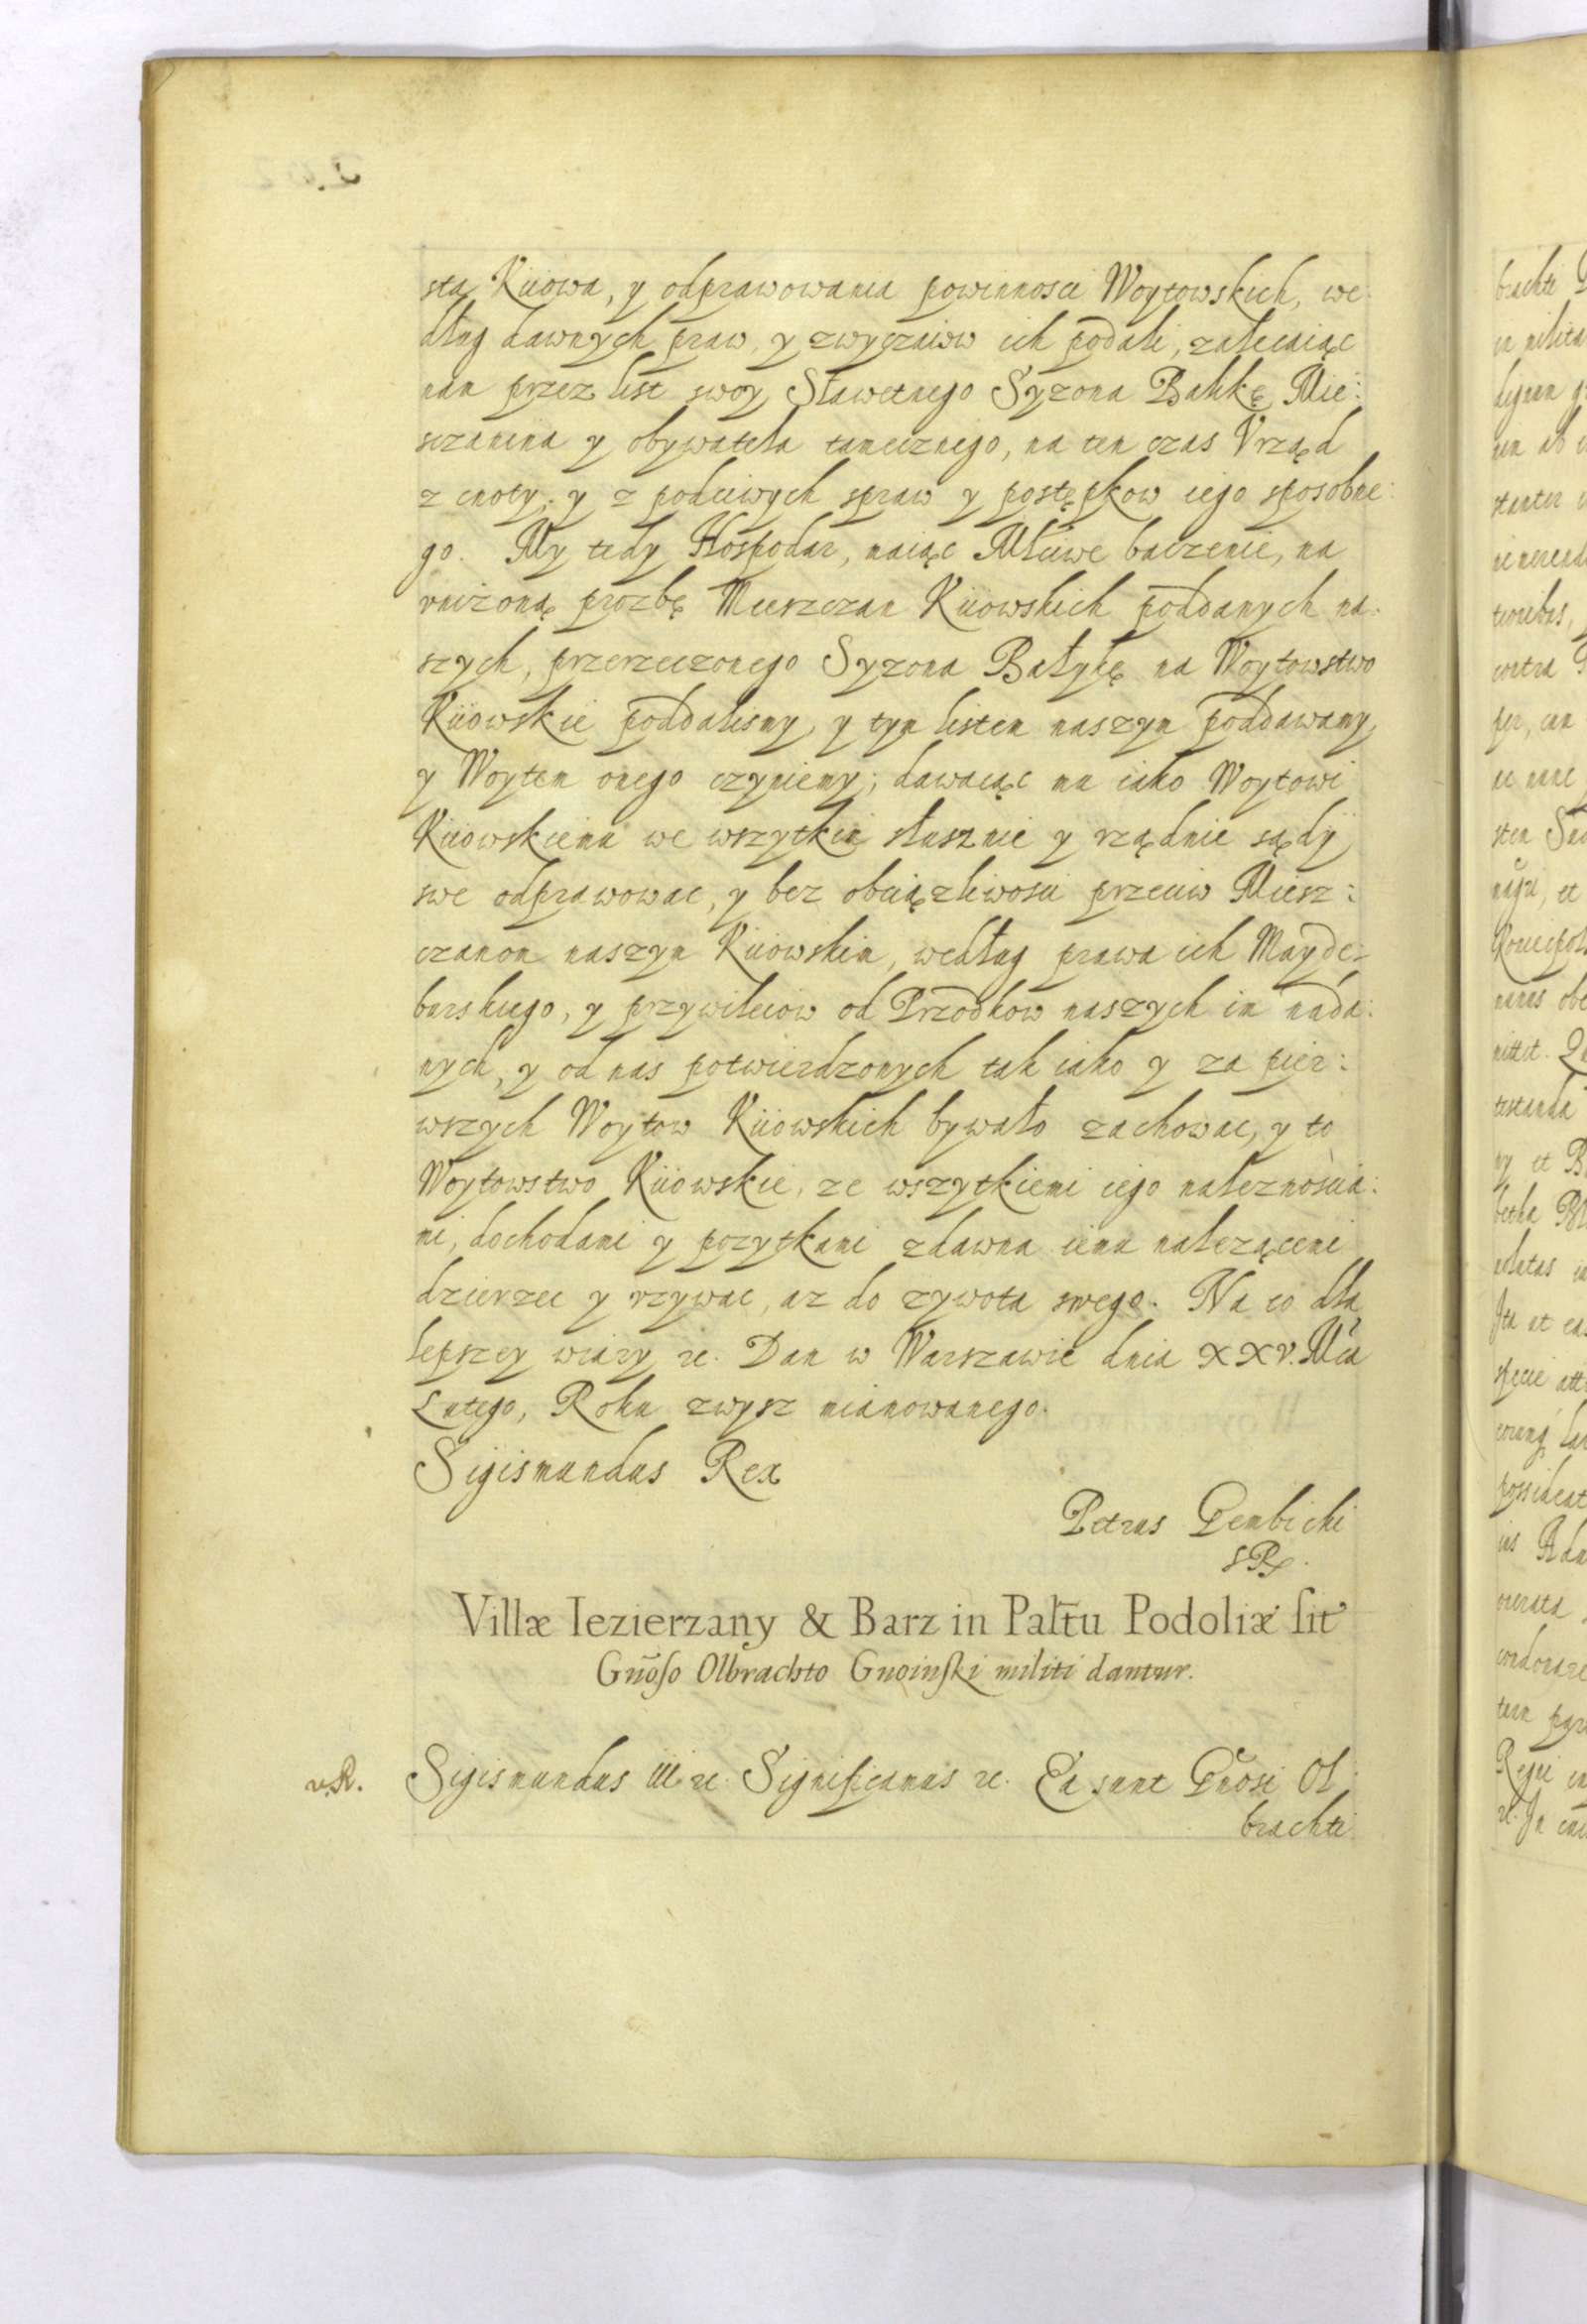 sta Kiiowa, y odprawowania powinnosci Woytowskich, we
dług dawnych praw, y zwyczaiow ich podali, zalecaiąc
nam przez list swoy Sławetnego Syzona Bałikę Mie:
sczanina y obywatela tamecznego, na ten czas Vrząd
z cnoty, y z podciwych spraw y postępkow iego sposobne:
go. My tedy Hospodar, maiąc Młciwe baczenie, na
vniżoną prozbę Mieszczan Kiiowskich poddanych na:
szych, przerzeczonego Syzona Bałykę na Woytowstwo
Kiiowskie poddalismy, y tym listem naszym poddawamy
y Woytem onego czyniemy; dawaiąc mu iako Woytowi
Kiiowskiemu we wszytkim słusznie y rządnie sądÿ
swe odprawowac, y bez obciązliwosci przeciw Miesz:
czanom naszym Kiiowskim, według prawa ich Mayde:
burskiego, y przywileiow od Przodkow naszych im nada:
nych, y od nas potwierdzonych tak iako y za pier:
wszych Woytow Kiiowskich bywało zachowac, y to
Woytowstwo Kiiowskie, ze wszytkiemi iego naleznoscia:
mi, dochodami y pozytkami zdawna iemu nalezącemi
dzierzec y vzywac, az do zywota swego. Na co dla
lepszey wiary zc. Dan w Warszawie dnia XXV. Mca
Lutego, Roku zwysz mianowanego.
Sigismundus Rex
Petrus Gembicki
SR.
Villæ Iezierzany & Barz in Paltu Podoliæ sit
Gnoso Olbrachto Gnoinski militi dantur.
v.R. Sigismundus III. zc. Significamus zc. Ea sunt Gnosi Ol
brachti